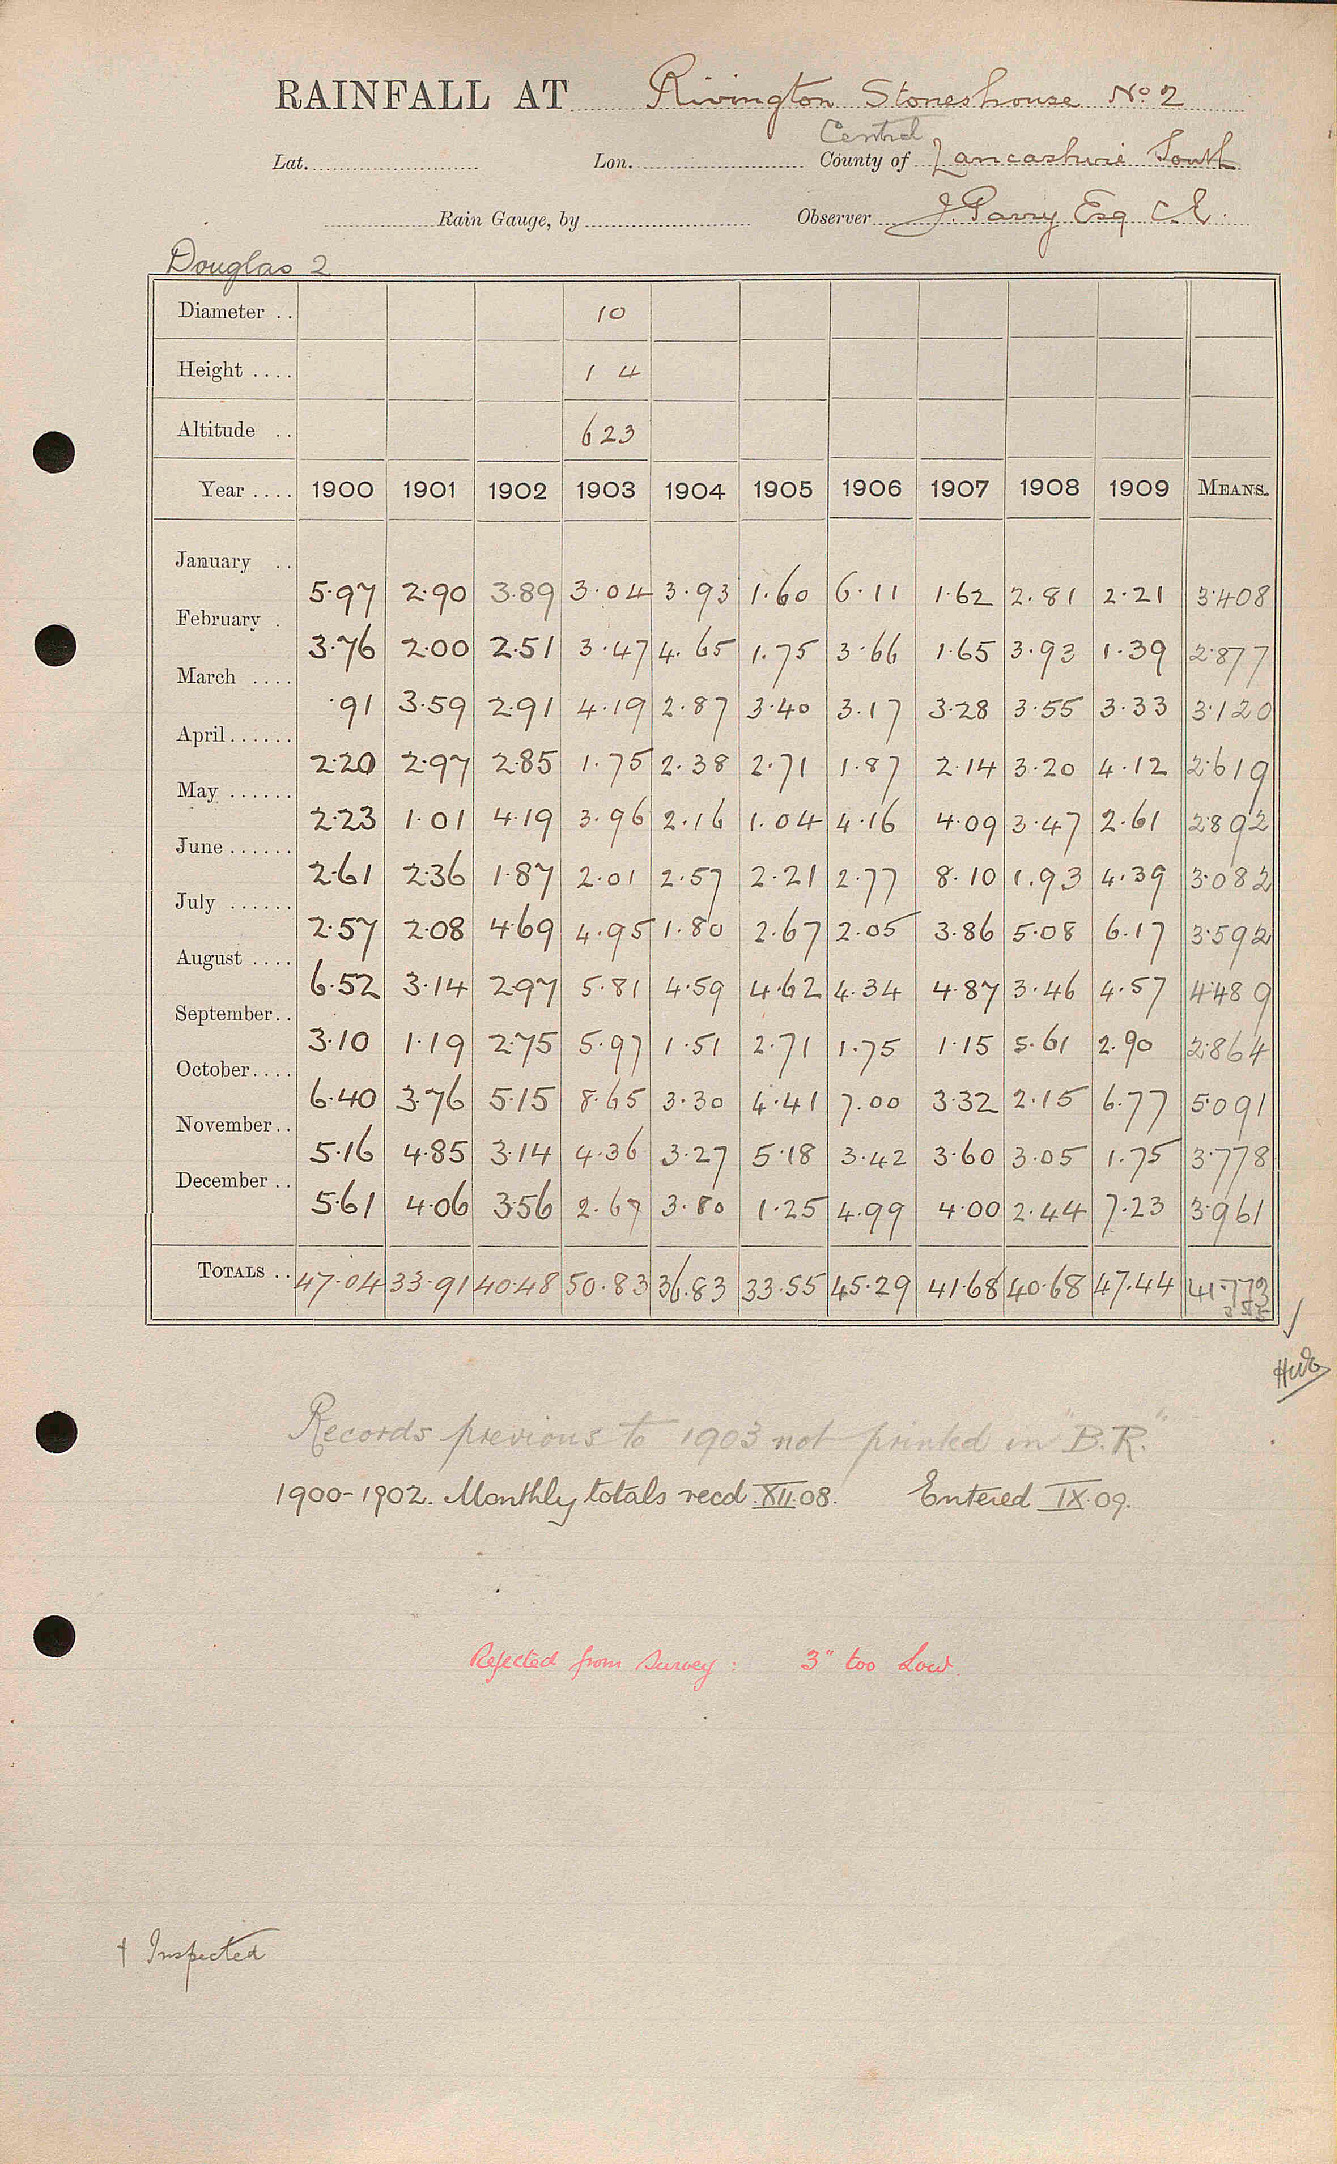 RAINFALL AT Rivington Stoneshouse No 2
Central
Lat. Lon. County of Lancashire South
Rain Gauge, by Observer J. Parry Esq C.E.
Douglas 2
Diameter .. 10
Height .... 1 4
Altitude .. 623
Year .... 1900 1901 1902 1903 1904 1905 1906 1907 1908 1909 MEANS.
January .. 5.97 2.90 3.89 3.04 3.93 1.60 6.11 1.62 2.81 2.21 3.408
February . 3.76 2.00 2.51 3.47 4.65 1.75 3.66 1.65 3.93 1.39 2.877
March .... .91 3.59 2.91 4.19 2.87 3.40 3.17 3.28 3.55 3.33 3.120
April...... 2.20 2.97 2.85 1.75 2.38 2.71 1.87 2.14 3.20 4.12 2.619
May ...... 2.23 1.01 4.19 3.96 2.16 1.04 4.16 4.09 3.47 2.61 2.892
June...... 2.61 2.36 1.87 2.01 2.57 2.21 2.77 8.10 1.93 4.39 3.082
July ...... 2.57 2.08 4.69 4.95 1.80 2.67 2.05 3.86 5.08 6.17 3.592
August .... 6.52 3.14 2.97 5.81 4.59 4.62 4.34 4.87 3.46 4.57 4.489
September.. 3.10 1.19 2.75 5.97 1.51 2.71 1.75 1.15 5.61 2.90 2.864
October.... 6.40 3.76 5.15 8.65 3.30 4.41 7.00 3.32 2.15 6.77 5.091
November.. 5.16 4.85 3.14 4.36 3.27 5.18 3.42 3.60 3.05 1.75 3.778
December .. 5.61 4.06 3.56 2.67 3.80 1.25 4.99 4.00 2.44 7.23 3.961
TOTALS .. 47.04 33.91 40.48 50.83 36.83 33.55 45.29 41.68 40.68 47.44 41.773
Records previous to 1903 not printed in "B.R."
1900-1902. Monthly totals recd XII.08. Entered IX.09.
Rejected from Survey : 3" too Low.
† Inspected